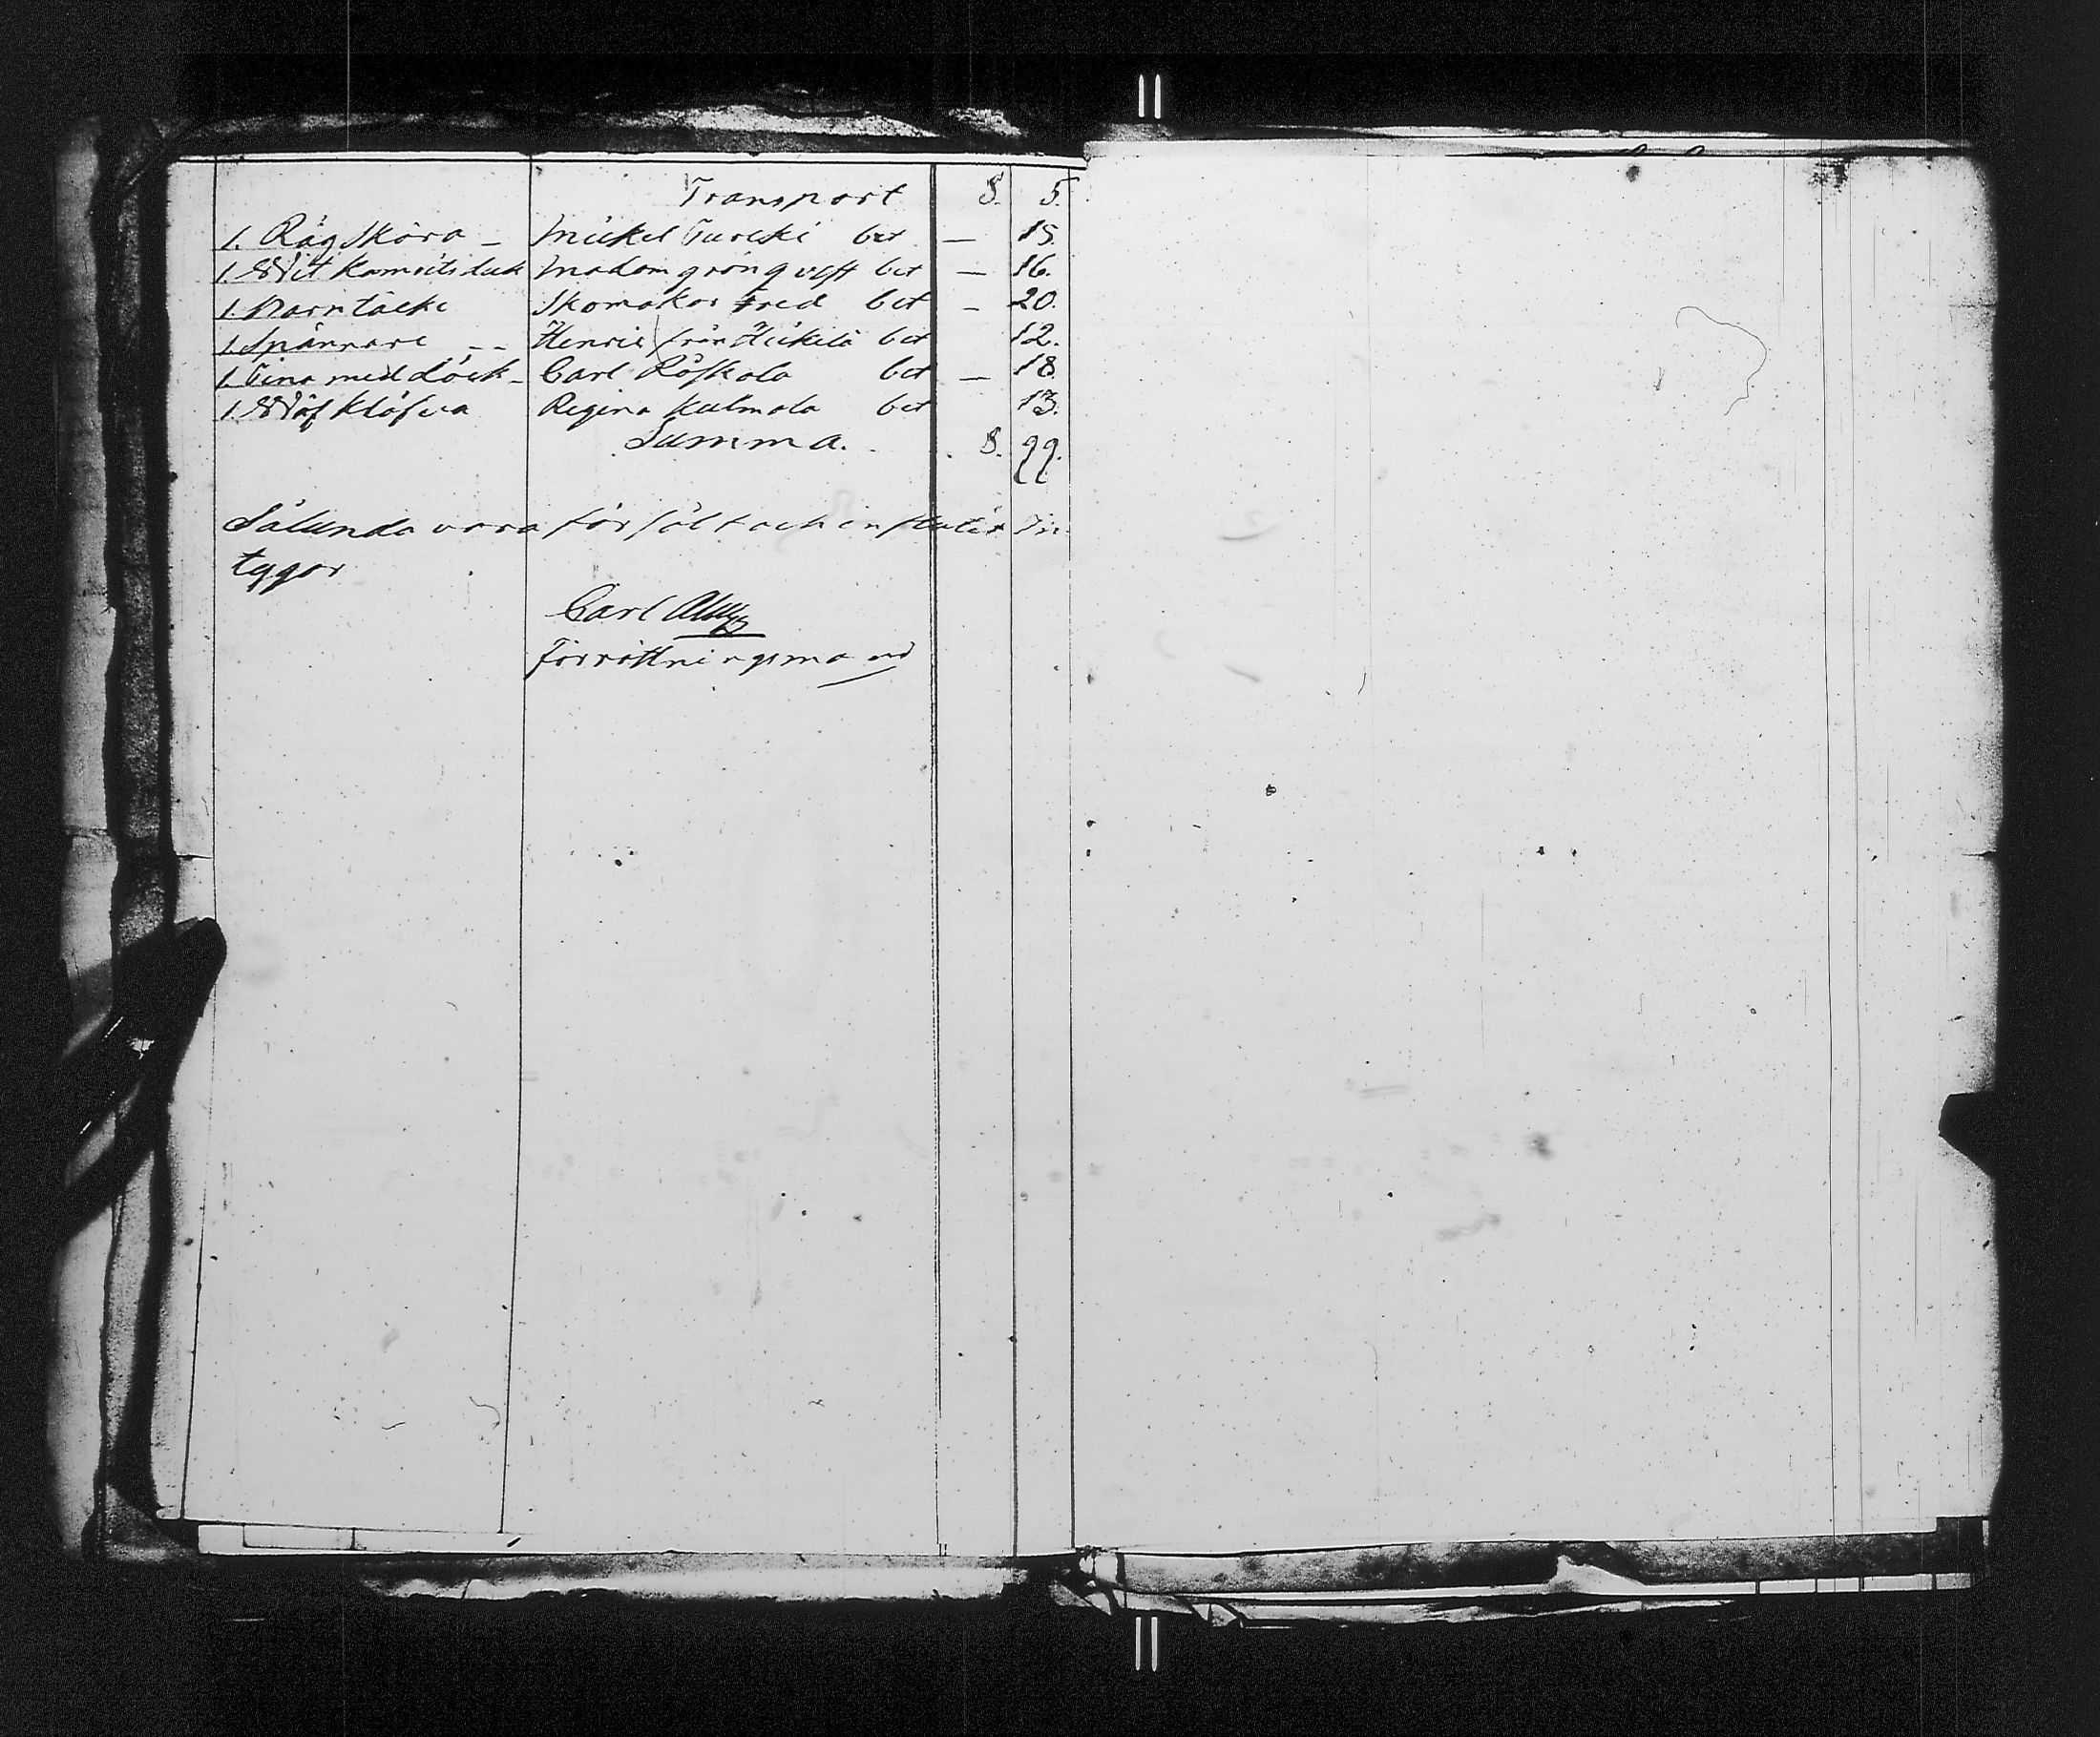 Transport 8. 5.
1. Råg Skära — Mickel Turcki bet — 15.
1. Wit Kamrits duk Madam grönqvist bet — 16.
1. Barntäcke Skomakar Fred bet — 20.
1. Spännare — — Henric från Heikilä bet 12.
1. Tina med Låck — Carl Råskala bet — 18.
1. Wäf Klåfva Regina Kulmala bet 13.
Summa. 8. 99.
Sålunda vara försålt och in
tygar
Carl
Förrättningsmand